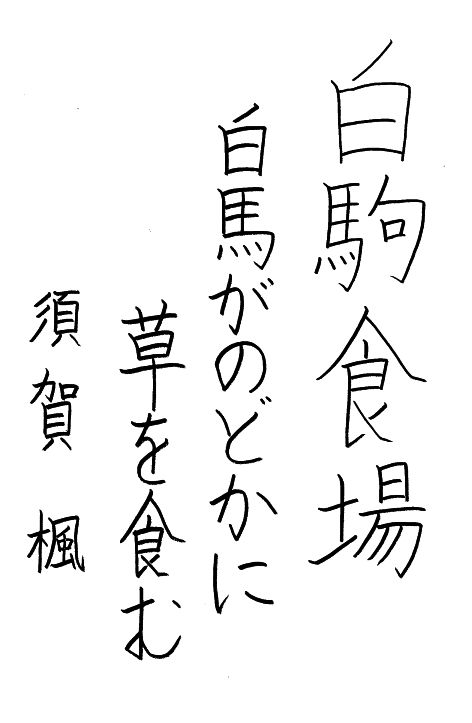 白駒食場
白馬がのどかに
草を食む
須賀楓